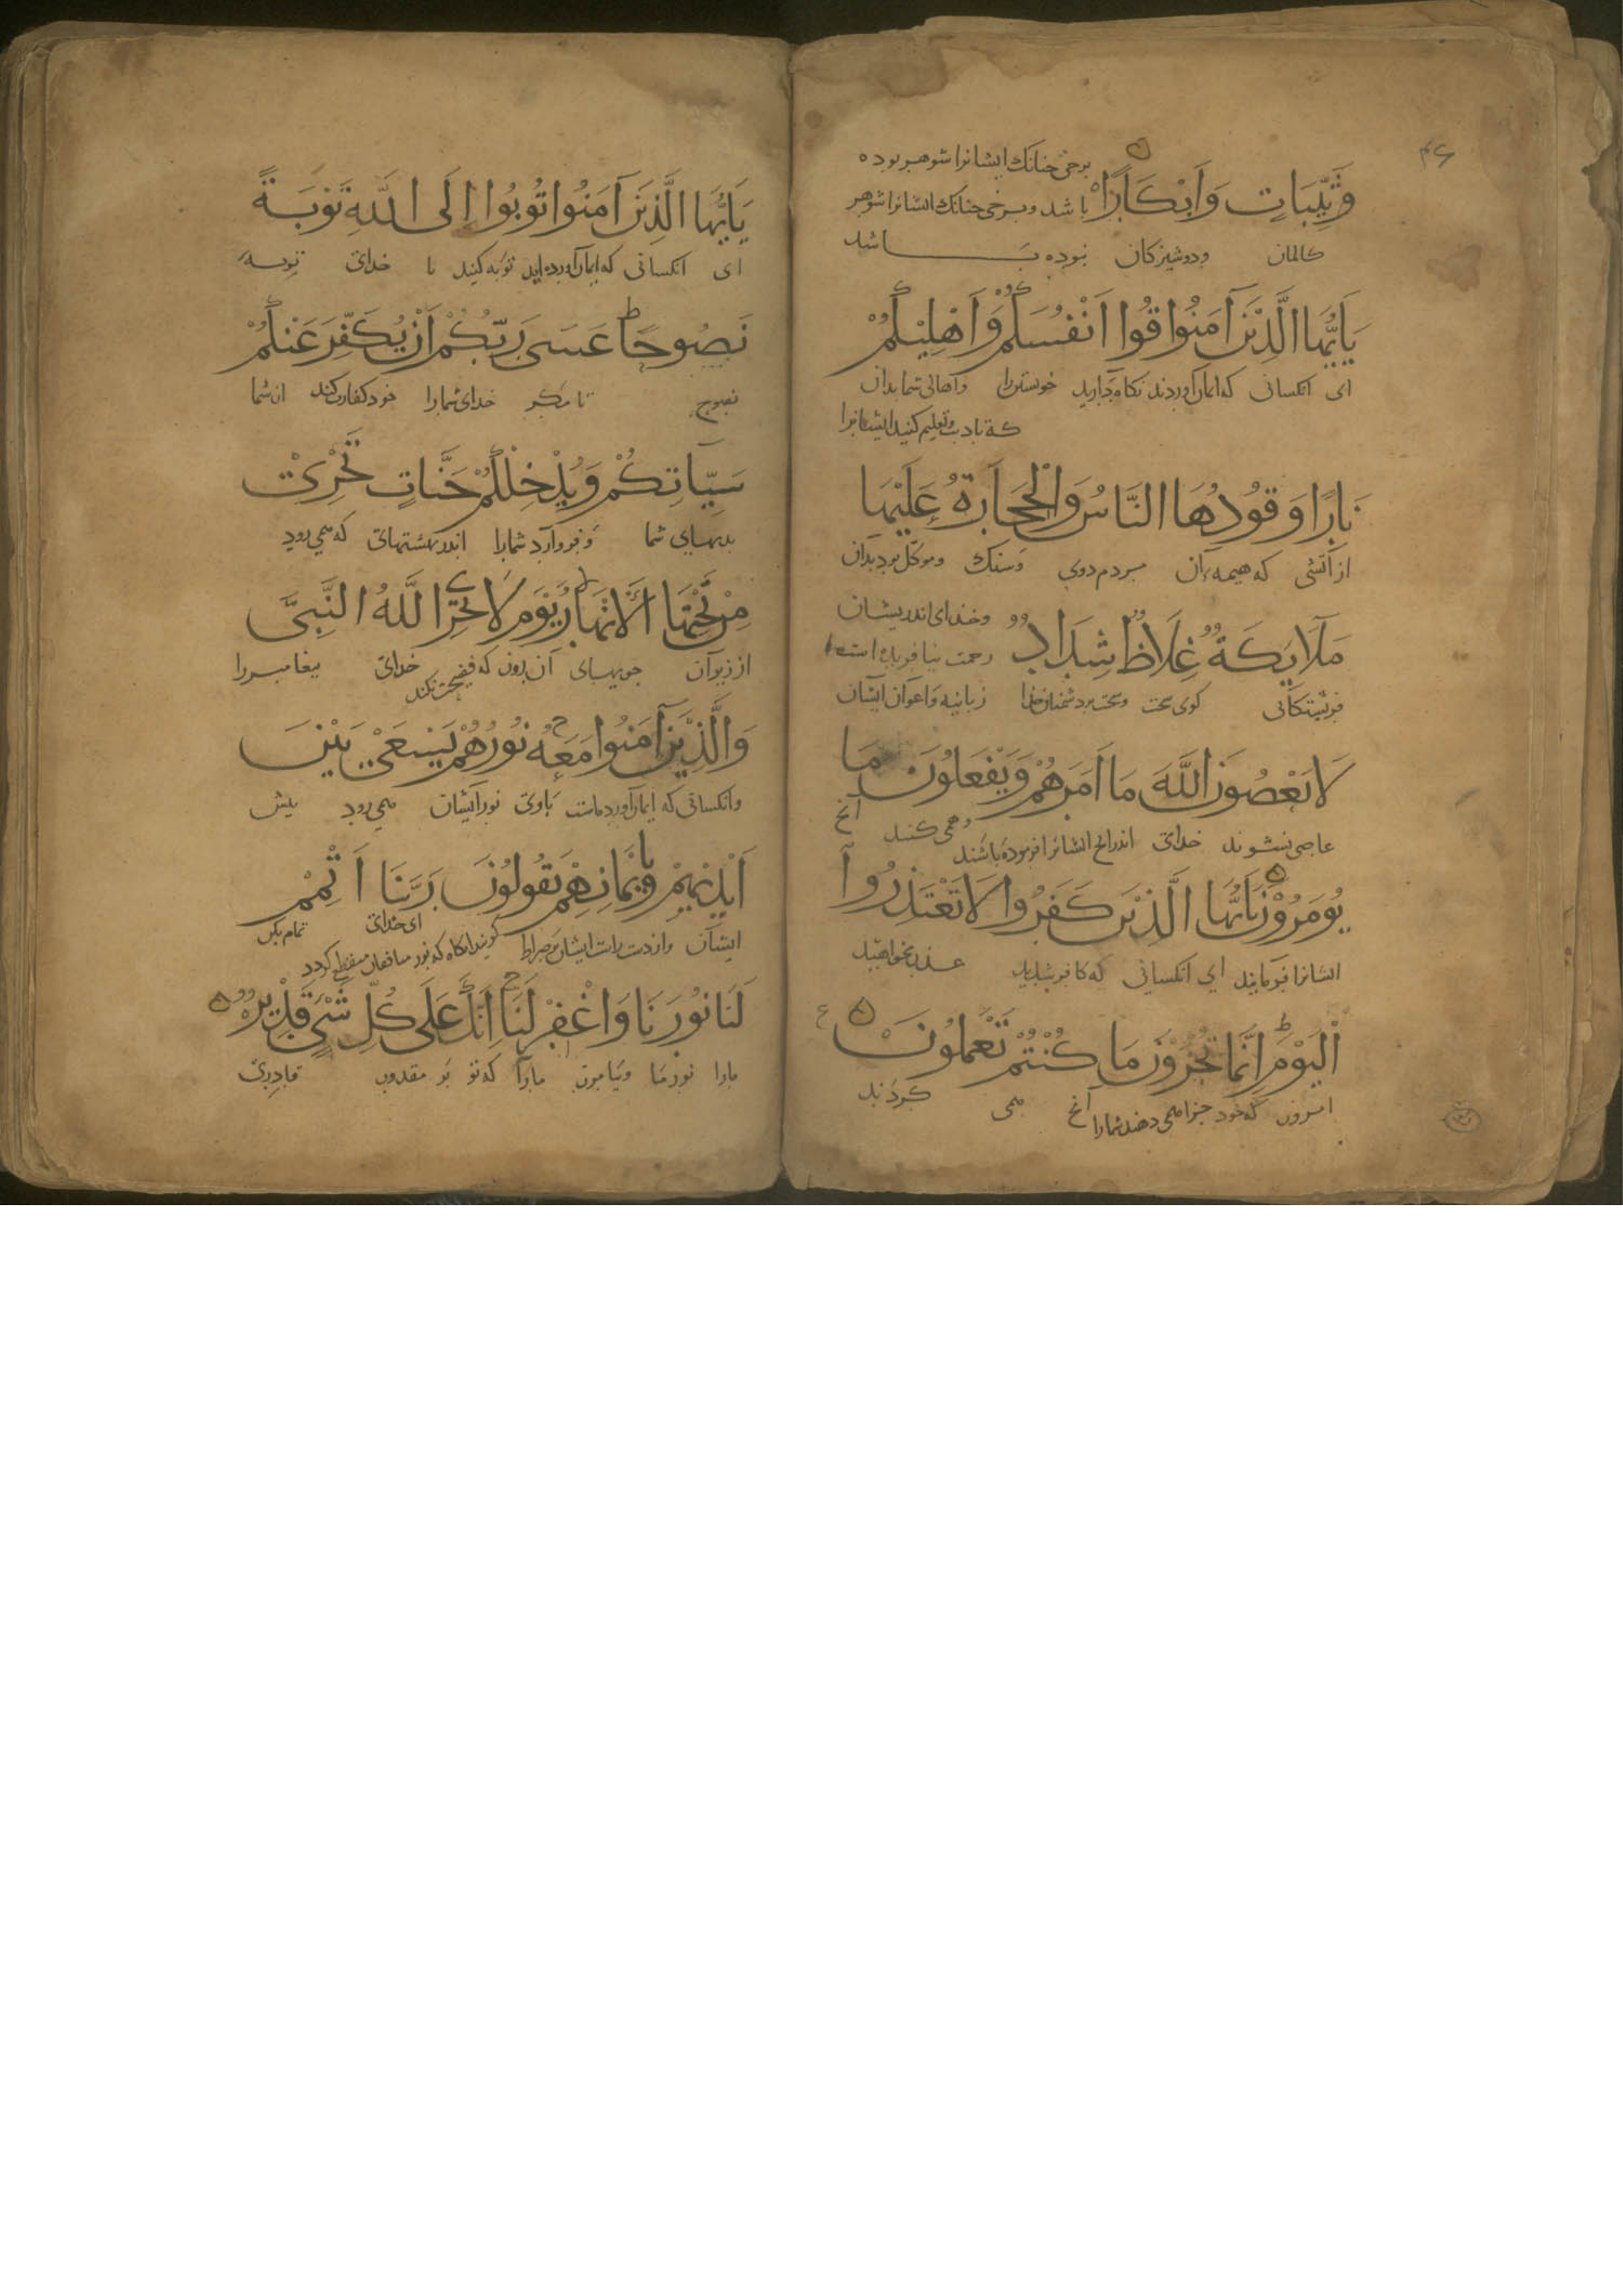 برخی چنانک ایشانرا شوهر بوده
ثَيِّبَاتٍ وَاَبْكَارًا
باشد و برخی چنانک ایشانرا شوهر
کالمان ودوشیزکان نبوده باشد
يَاَيُّهَا الَّذِيْنَ آمَنُوا قُوا اَنْفُسَكُمْ وَاَهْلِيْكُمْ
ای انکسانی که ایمان آوردند نکاه دارید خویشتنرا واهالی شما بدان
که تادیب وتعلیم کنید ایشانرا
نَارًا وَقُوْدُهَا النَّاسُ وَالْحِجَارَةُ عَلَيْهَا
از آتشی که هیمه آن مردم دوی وسنک وموکل بود بدان
وخدای اندریشان
مَلَايِكَةٌ غِلَاظٌ شِدَادٌ
رحمت نیافریده است
فریشتکانی قوی سخت وسخت بر دشمنان خدا زبانیه واعوان ایشان
لَا يَعْصُوْنَ اللَّهَ مَا اَمَرَهُمْ وَيَفْعَلُوْنَ مَا
عاصی نشوند خدای اندرانچ ایشانرا فرموده باشند وهمی کنند آنچ
يُوْمَرُوْنَ يَاَيُّهَا الَّذِيْنَ كَفَرُوا لَا تَعْتَذِرُوا
ایشانرا فرمایند ای انکسانی که کافر شدید عذر نخواهید
اَلْيَوْمَ اِنَّمَا تُجْزَوْنَ مَا كُنْتُمْ تَعْمَلُوْنَ
امروز که خود جزا همی دهند شمارا آنچ همی کردند
يَاَيُّهَا الَّذِيْنَ آمَنُوا تُوبُوا اِلَى اللَّهِ تَوْبَةً
ای انکسانی که ایمان آورده اید توبه کنید با خدای توبه
نَصُوحًا عَسَى رَبُّكُمْ اَنْ يُكَفِّرَ عَنْكُمْ
نصوح تا مکر خدای شمارا خود کفارت کند از شما
سَيِّآتِكُمْ وَيُدْخِلَكُمْ جَنَّاتٍ تَجْرِيْ
بدیهای شما وفرو آرد شمارا اندر بهشتهای که همی رود
مِنْ تَحْتِهَا الْاَنْهَارُ يَوْمَ لَا يُخْزِي اللَّهُ النَّبِيَّ
از زیر آن جویهای آن روز که فضیحت نکند خدای پیغامبر را
وَالَّذِيْنَ آمَنُوا مَعَهُ نُوْرُهُمْ يَسْعَى بَيْنَ
وانکسانی که ایمان آورده است باوی نور ایشان همی رود پیش
اَيْدِيْهِمْ وَبِاَيْمَانِهِمْ يَقُولُوْنَ رَبَّنَا اَتْمِمْ
ایشان واز دست راست ایشان بر صراط کویند انکاه که نور منافقان منقطع کردد ای خدای تمام بکن
لَنَا نُوْرَنَا وَاغْفِرْ لَنَا اِنَّكَ عَلَى كُلِّ شَيْءٍ قَدِيْرٌ
مارا نور ما وبیامرز مارا که تو بر مقدور قادری